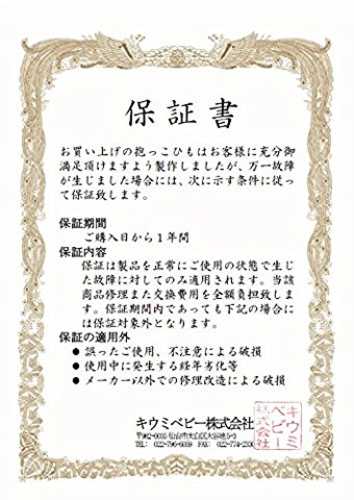 保証書
お買い上げの抱っこひもはお客様に充分御
満足頂けますよう製作しましたが、万一故障
が生じました場合には、次に示す条件に従っ
て保証致します。
保証期間
ご購入日から1年間
保証内容
保証は製品を正常にご使用の状態で生じ
た故障に対してのみ適用されます。当該
商品修理また交換費用を全額負担致しま
す。保証期間内であっても下記の場合に
は保証対象外となります。
保証の適用外
● 誤ったご使用、不注意による破損
● 使用中に発生する経年劣化等
● メーカー以外での修理改造による破損
キウミベビー株式会社
キウミ
ベビー
株式会社